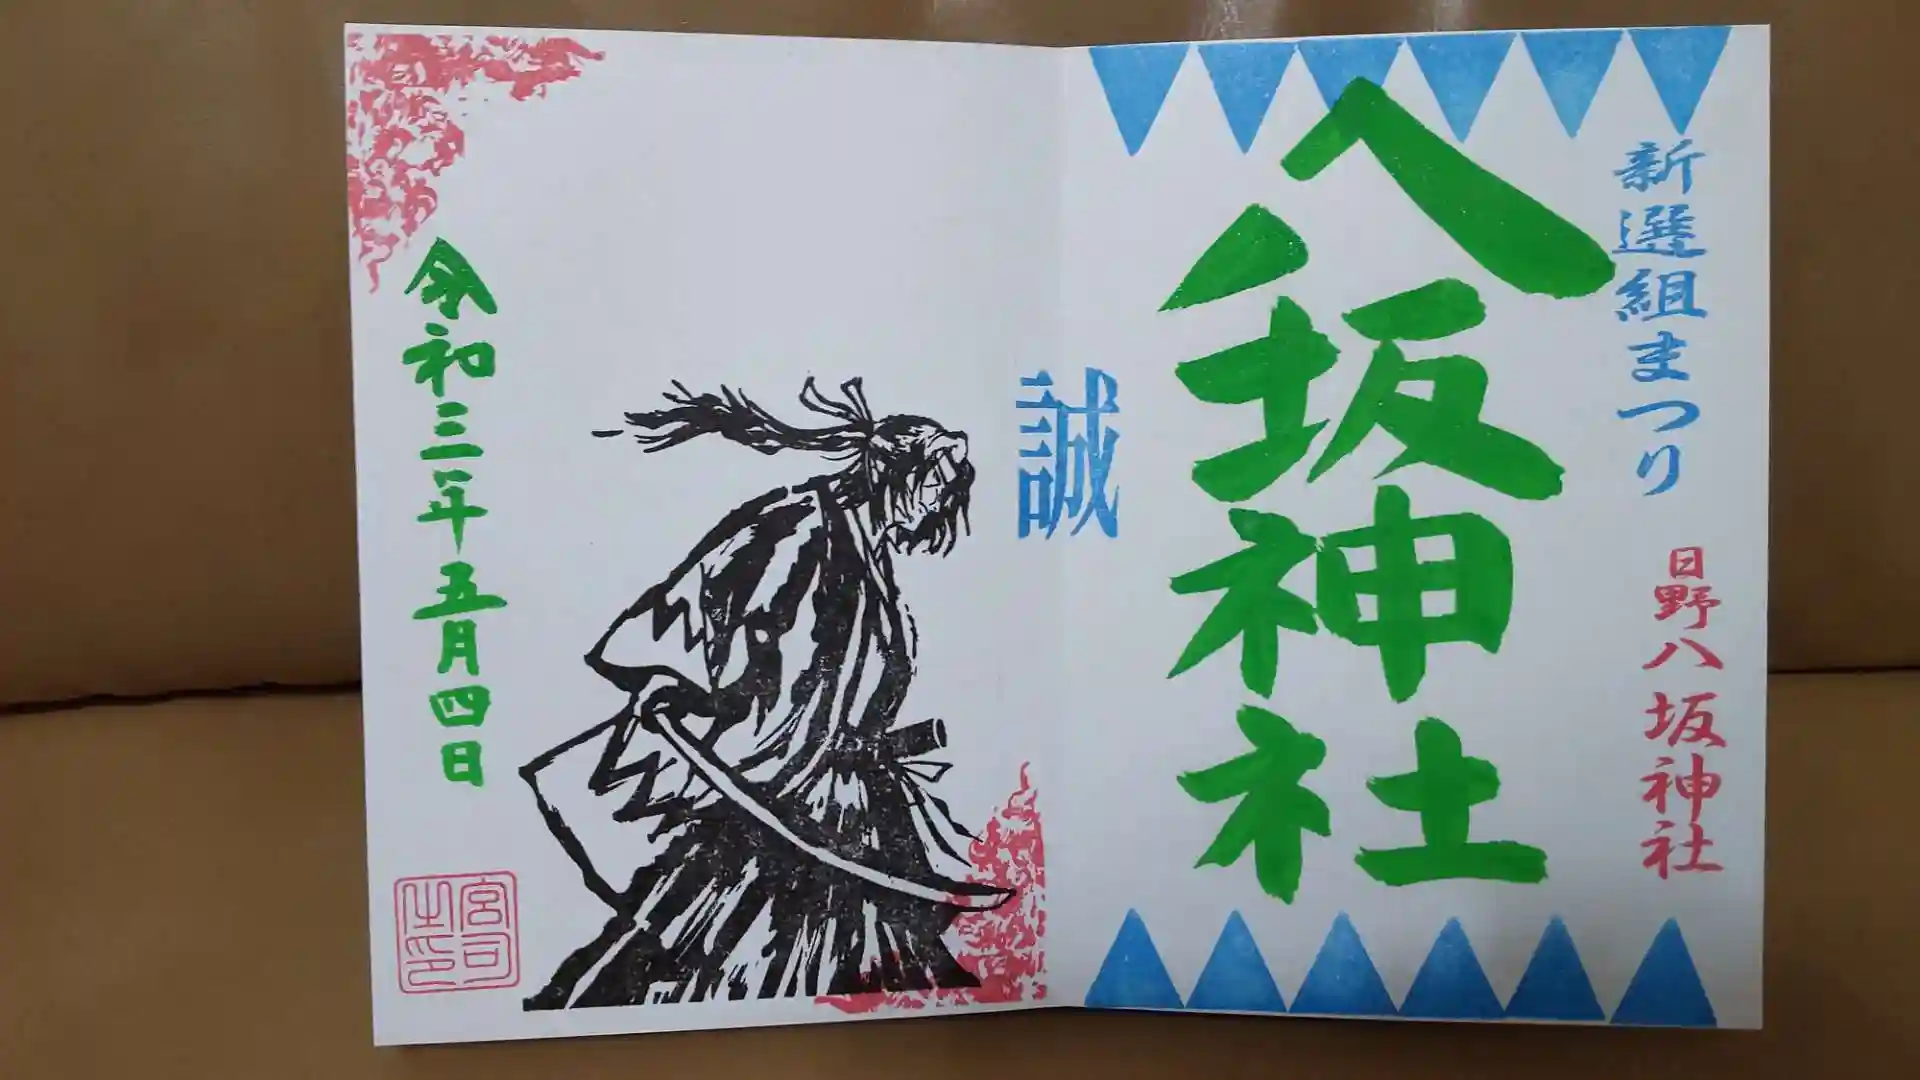 新選組まつり
日野八坂神社
八坂神社
誠
令和三年五月四日
宮司
之印